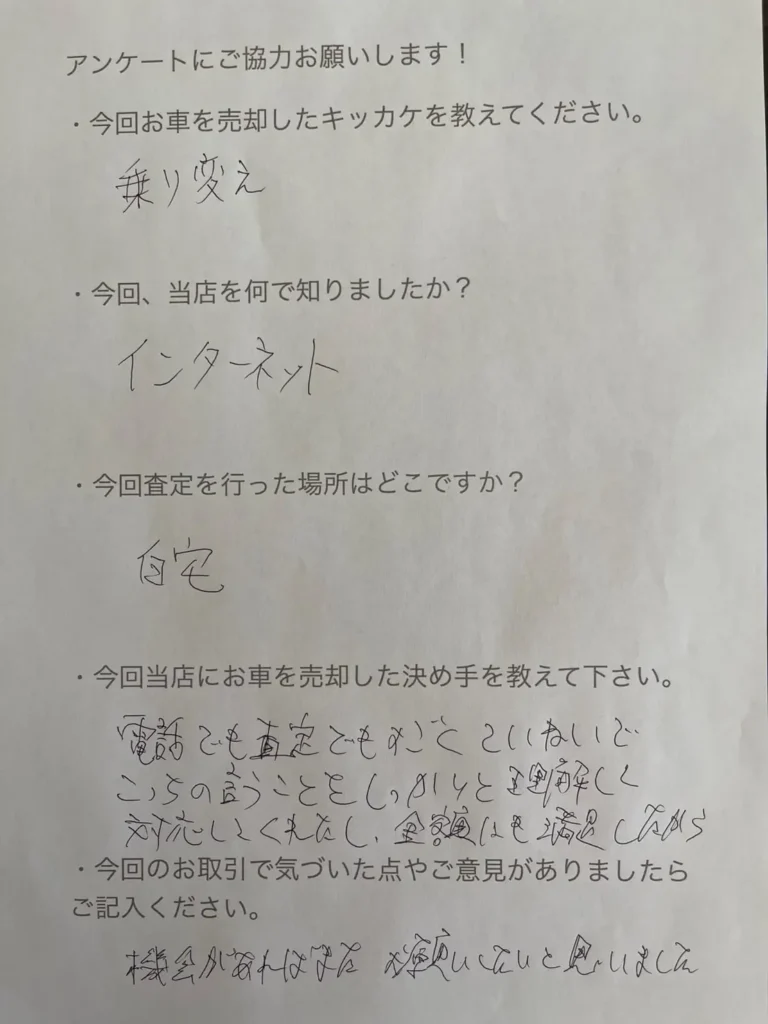 アンケートにご協力お願いします！
・今回お車を売却したキッカケを教えてください。
乗り変え
・今回、当店を何で知りましたか？
インターネット
・今回査定を行った場所はどこですか？
自宅
・今回当店にお車を売却した決め手を教えて下さい。
電話でも査定でもすごくていねいで
こっちの言うことをしっかりと理解して
対応してくれたし、金額にも満足したから
・今回のお取引で気づいた点やご意見がありましたら
ご記入ください。
機会があればまたお願いしたいと思いました